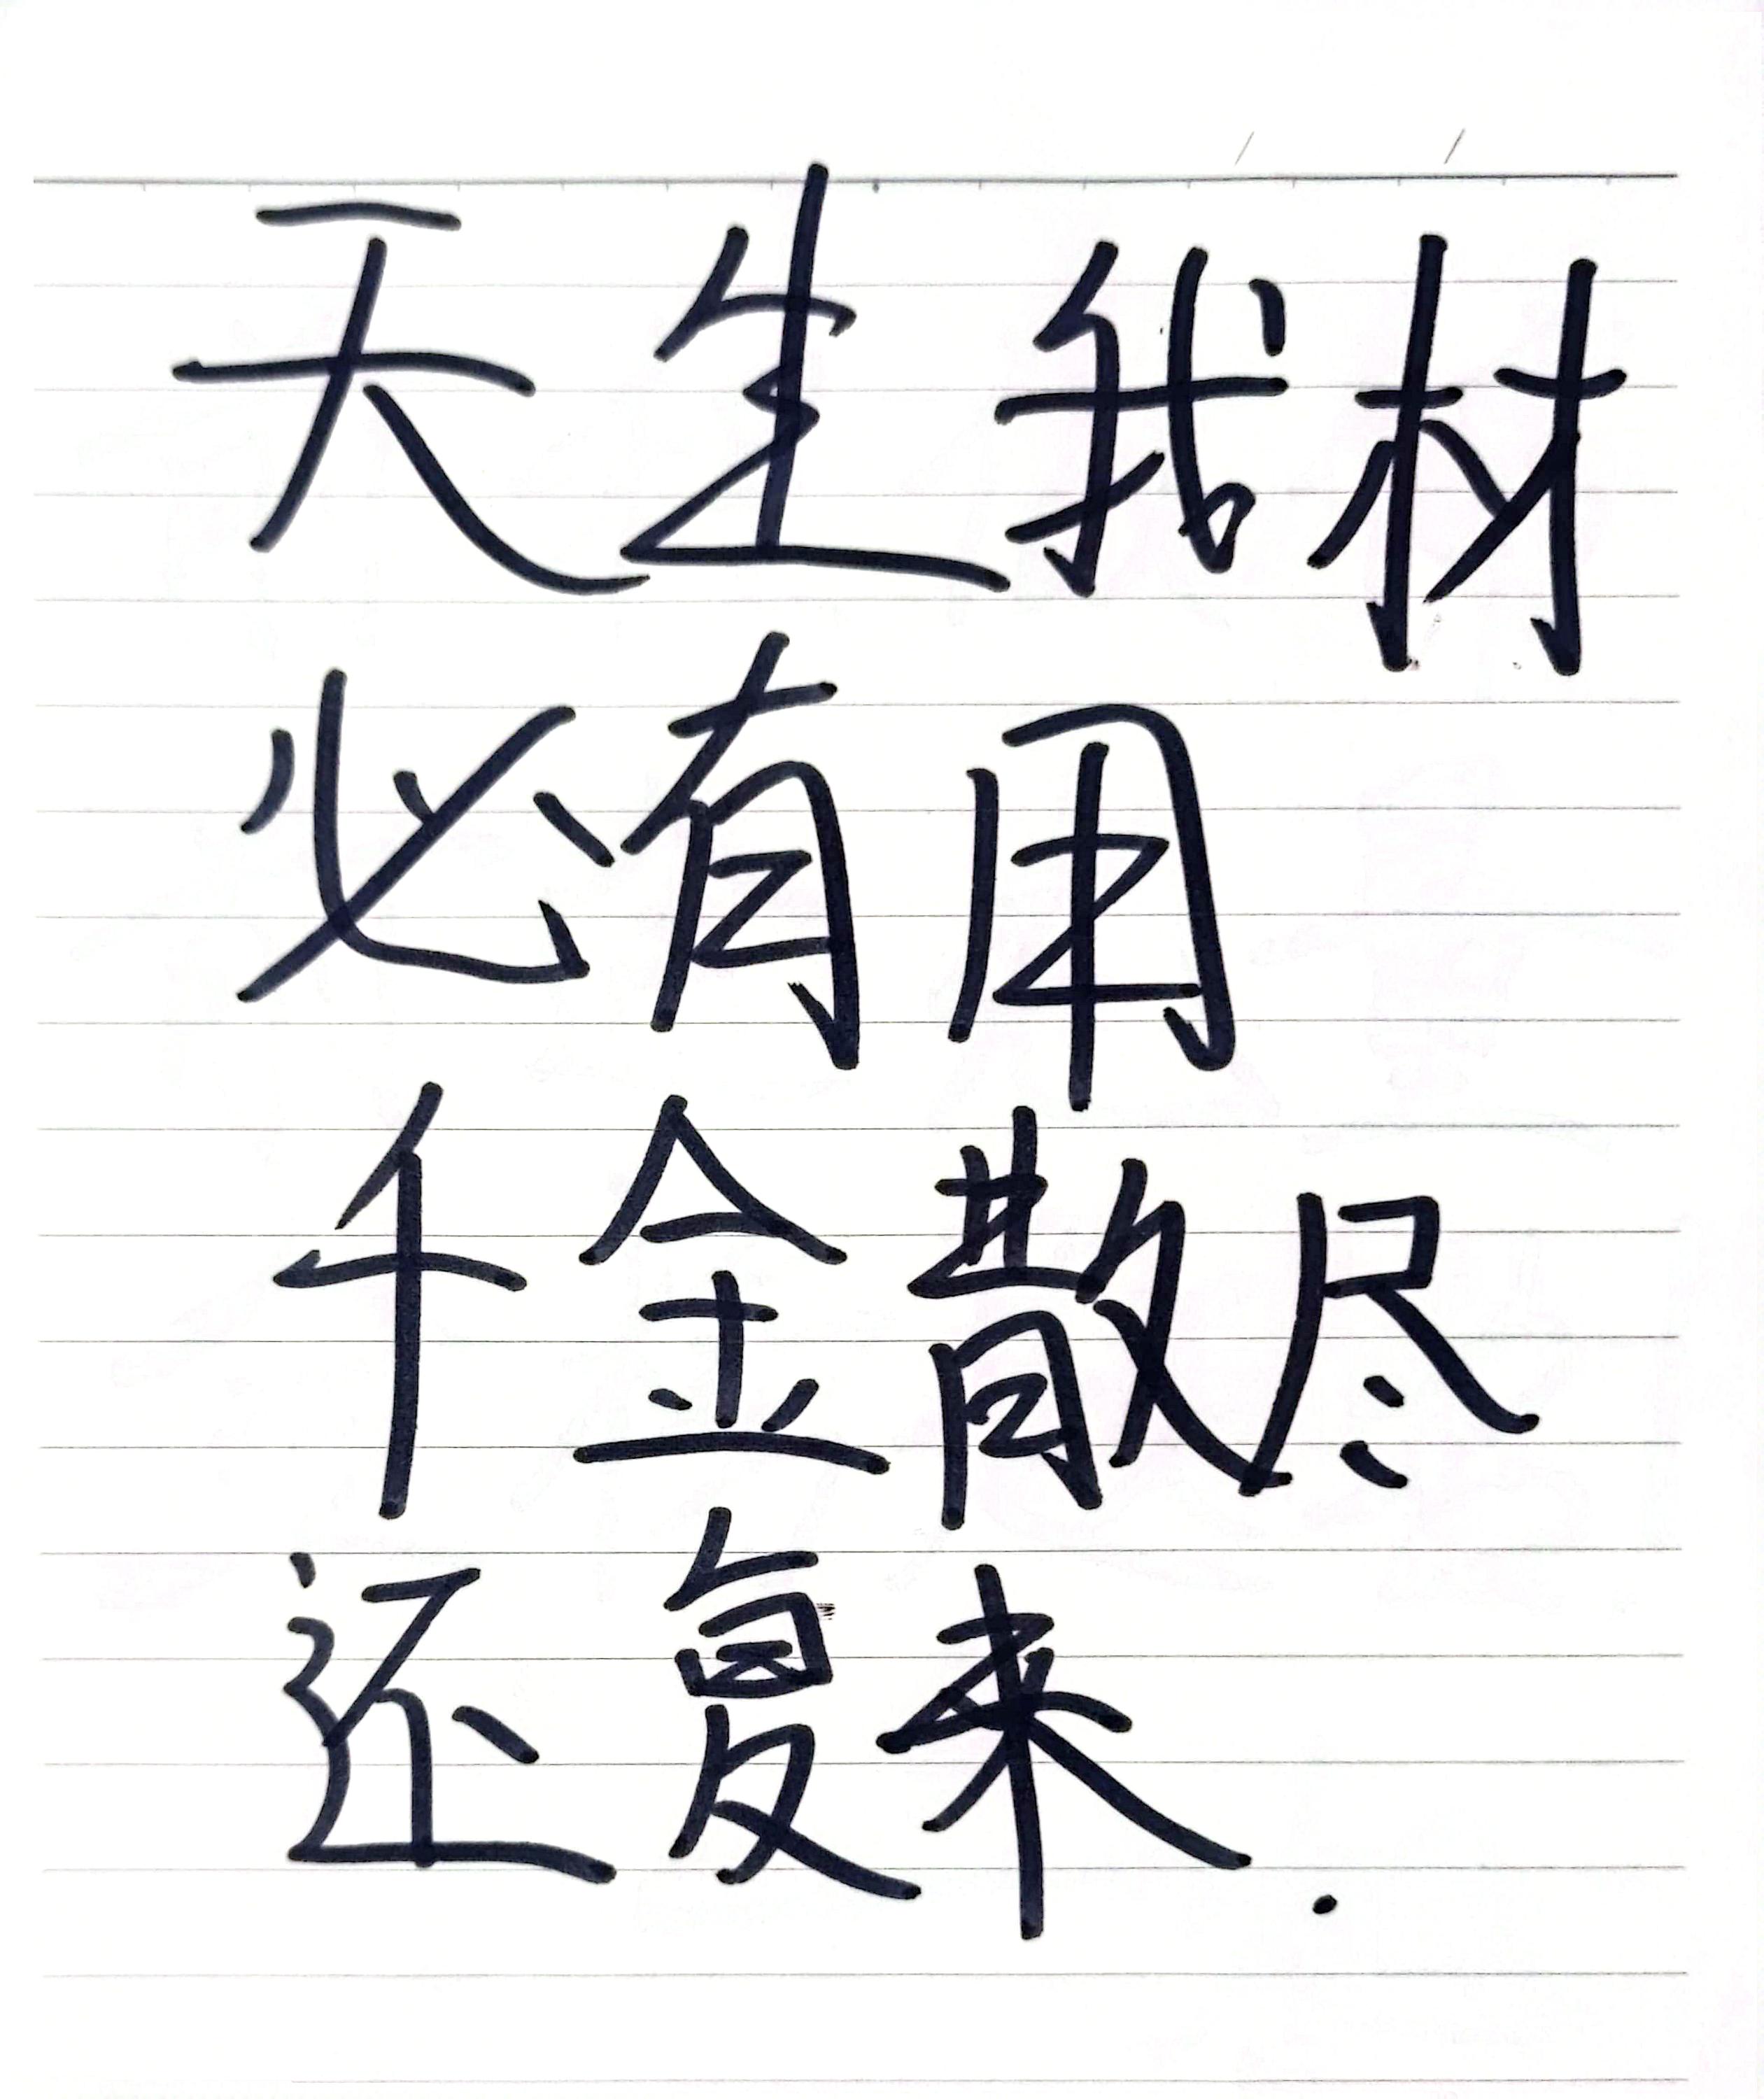 天生我材
必有用
千金散尽
还复来.